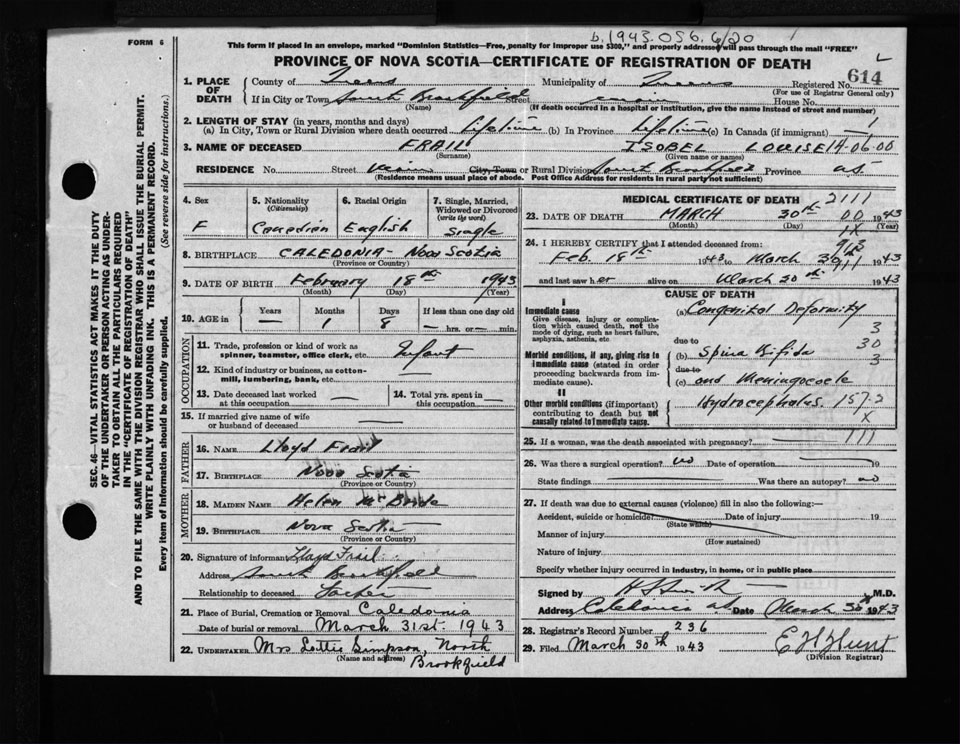 b. 1943.056.6/20
FORM 6
This form if placed in an envelope, marked "Dominion Statistics—Free, penalty for improper use $300," and properly addressed will pass through the mail "FREE"
PROVINCE OF NOVA SCOTIA—CERTIFICATE OF REGISTRATION OF DEATH
SEC. 46—VITAL STATISTICS ACT MAKES IT THE DUTY
OF THE UNDERTAKER OR PERSON ACTING AS UNDER-
TAKER TO OBTAIN ALL THE PARTICULARS REQUIRED
IN THE "CERTIFICATE OF REGISTRATION OF DEATH"
AND TO FILE THE SAME WITH THE DIVISION REGISTRAR WHO SHALL ISSUE THE BURIAL PERMIT.
WRITE PLAINLY WITH UNFADING INK. THIS IS A PERMANENT RECORD.
Every item of Information should be carefully supplied. (See reverse side for instructions.)
1. PLACE OF DEATH County of Queens Municipality of Queens Registered No. 614
(For use of Registrar General only)
If in City or Town South Brookfield Street House No.
(Name) (If death occurred in a hospital or institution, give the name instead of street and number)
2. LENGTH OF STAY (in years, months and days)
(a) In City, Town or Rural Division where death occurred Lifetime (b) In Province Lifetime (c) In Canada (if immigrant) —
3. NAME OF DECEASED FRAIL ISOBEL LOUISE 14-06-00
(Surname) (Given name or names)
RESIDENCE No. Street Main City, Town or Rural Division South Brookfield Province
(Residence means usual place of abode. Post Office Address for residents in rural party not sufficient)
4. Sex F
5. Nationality (Citizenship) Canadian
6. Racial Origin English
7. Single, Married, Widowed or Divorced (write the word) Single
8. BIRTHPLACE CALEDONIA- Nova Scotia
(Province or Country)
9. DATE OF BIRTH February 18th 1943
(Month) (Day) (Year)
10. AGE in Years — Months 1 Days 8 If less than one day old — hrs. or — min.
OCCUPATION
11. Trade, profession or kind of work as spinner, teamster, office clerk, etc. Infant
12. Kind of industry or business, as cotton-mill, lumbering, bank, etc. —
13. Date deceased last worked at this occupation —
14. Total yrs. spent in this occupation —
15. If married give name of wife or husband of deceased —
FATHER
16. NAME Lloyd Frail
17. BIRTHPLACE Nova Scotia
(Province or Country)
MOTHER
18. MAIDEN NAME Helen McBride
19. BIRTHPLACE Nova Scotia
(Province or Country)
20. Signature of informant Lloyd Frail
Address South Brookfield
Relationship to deceased Father
21. Place of Burial, Cremation or Removal Caledonia
Date of burial or removal March 31st. 1943
22. UNDERTAKER Mrs Lottie Simpson, North Brookfield
(Name and address)
MEDICAL CERTIFICATE OF DEATH 2111
23. DATE OF DEATH MARCH 30th 00 1943
(Month) (Day) (Year)
1X
24. I HEREBY CERTIFY that I attended deceased from:
Feb. 18th 1943 to March 30th 1943
and last saw her alive on March 30th 1943
CAUSE OF DEATH
I
Immediate cause
Give disease, injury or complication which caused death, not the mode of dying, such as heart failure, asphyxia, asthenia, etc
(a) Congenital Deformity
3
due to
30
Morbid conditions, if any, giving rise to immediate cause (stated in order proceeding backwards from immediate cause).
(b) Spina Bifida
3
due to
(c) and Meningocele
II
Other morbid conditions (if important) contributing to death but not causally related to immediate cause.
Hydrocephalus. 157-2
X
25. If a woman, was the death associated with pregnancy? 111
26. Was there a surgical operation? no Date of operation 19
State findings Was there an autopsy? no
27. If death was due to external causes (violence) fill in also the following:—
Accident, suicide or homicide? Date of injury 19
(State which)
Manner of injury
(How sustained)
Nature of injury
Specify whether injury occurred in industry, in home, or in public place
Signed by M.D.
Address Caledonia Date March 30th 1943
28. Registrar's Record Number 236
29. Filed March 30th 1943 E H Hunt
(Division Registrar)